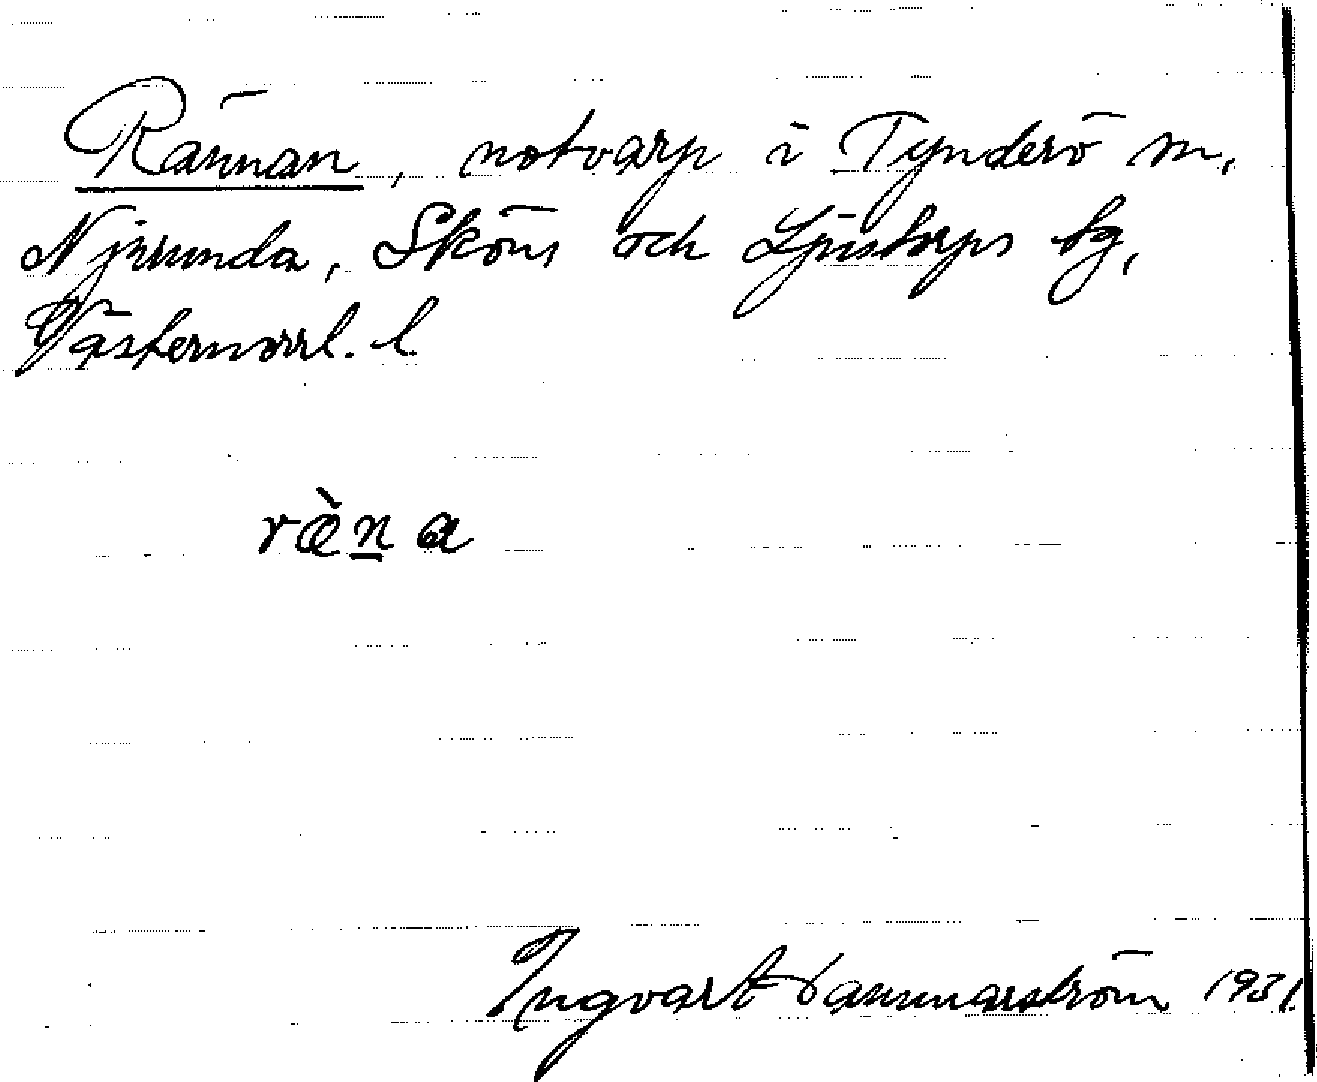 Rännan, notvarp i Tynderö sn,
Njurunda, Sköns och Ljustorps tg,
Västernorrl. l.
ræ̀n̲a
Ingvart Hammarström 1931.